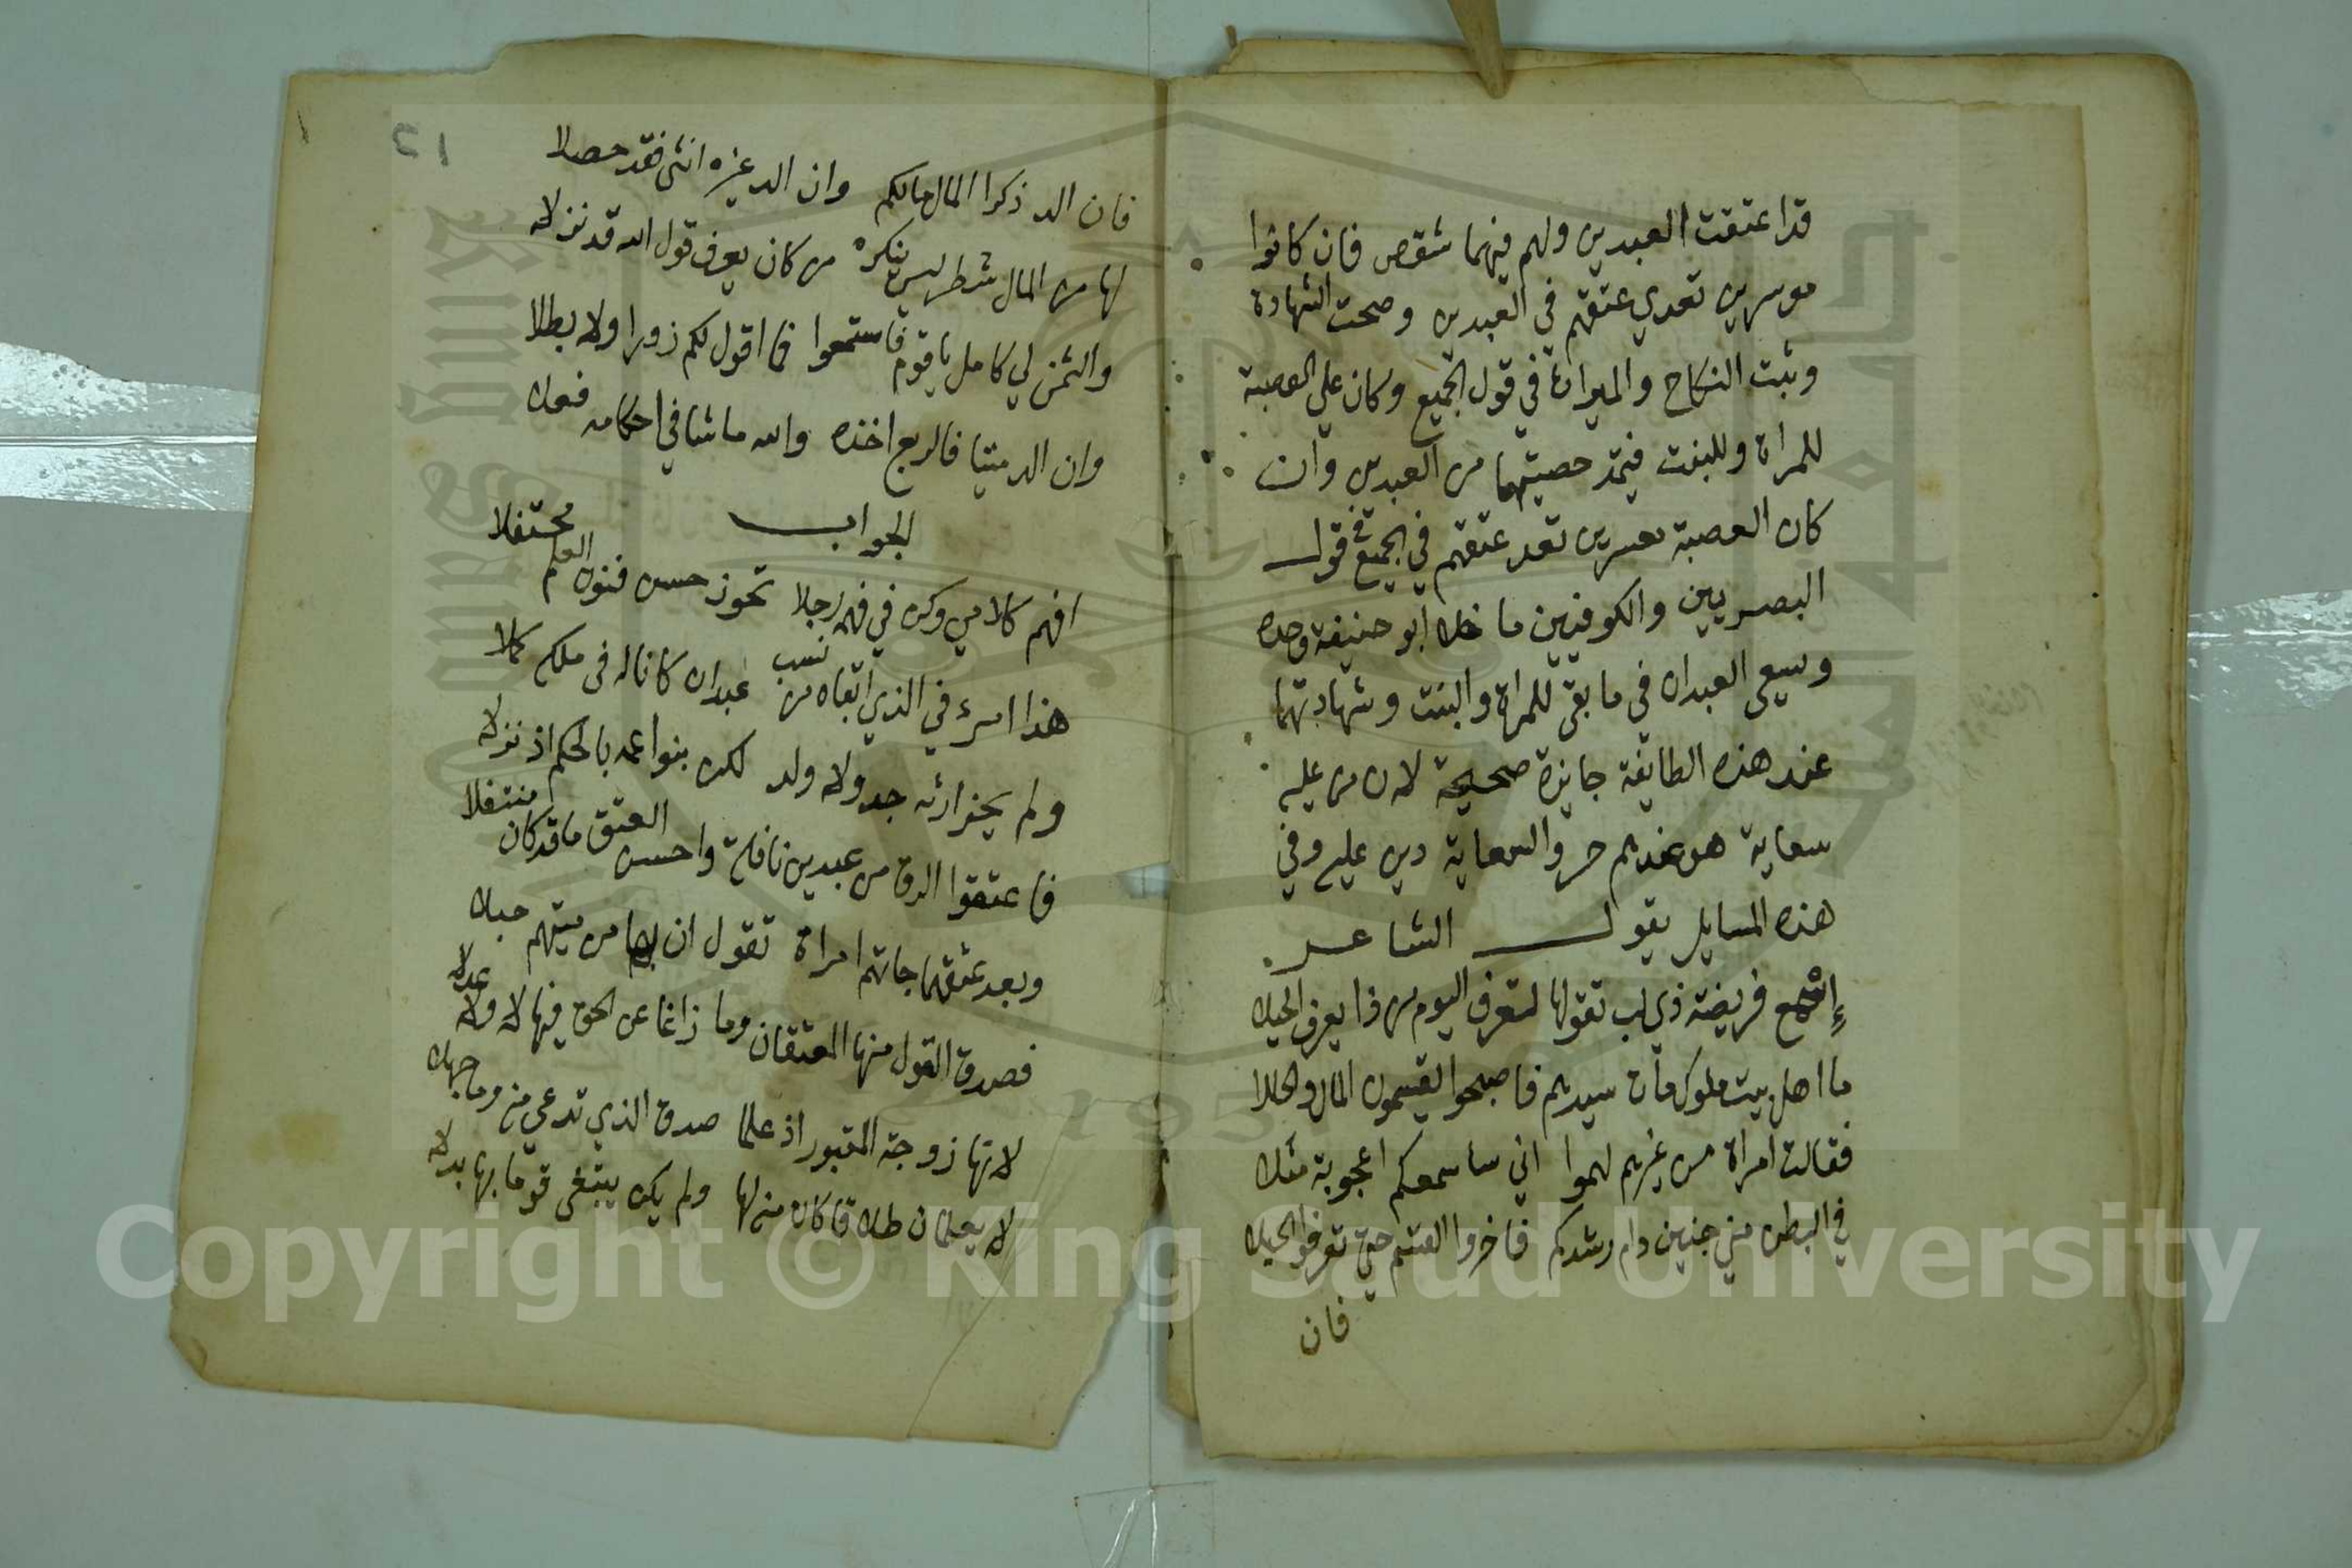 قد اعتقت العبدين ولهم فيهما شقص فان كانوا
موسرين تعدي عتقهم في العبدين وصحت الشهادة
وثبت النكاح والميراث في قول الجميع وكان علي العصبة
للمراة وللبنت قيمة حصيتهما من العبدين وان
كان العصبة معسرين تعد عتقهم في الجميع في قول
البصريين والكوفيين ما خلا ابو حنيفة وحده
وسعى العبدان في ما بقى للمراة والبنت وشهادتهما
عند هذه الطايفة جايزة صحيحة لان من عليه
سعاية هو عندهم حر والسعاية دين عليه وفي
هذه المسايل يقول الشاعر
إسمع فريضة ذي لب تقولها لتعرف اليوم من ذا يعرف الحيلا
ما اهل بيت ملوك مات سيدهم فاصبحوا يقسمون المال والحللا
فقالت امراة من غيرهم لهموا اني ساسمعكم اعجوبة مثلا
في البطن مني جنين دام رشدكم فاخروا القسم حتى تعرفوا الحبلا
فان
٢١
فان الد ذكرا المال مالكم وان الد غيره انثى فقد حصلا
لها من المال شطر ليس ينكره من كان يعرف قول الله قد نزلا
والثمن لي كامل يا قوم فاستمعوا فما اقول لكم زورا ولا بطلا
وان الد ميتا فالربع اخذه والله ما شا في احكامه فعلا
الجواب
افهم كلامي وكن في فهمه رجلا تحوز حسن فنون العلم محتفلا
هذا امرء في الذي ابقاه من نسب عبدان كانا له في ملكه كملا
ولم يحز ارثه جد ولا ولد لكن بنوا عمه بالحكم اذ نزلا
فاعتقوا الرق من عبدين نافلة واحسن العتق ما قد كان منتفلا
وبعد عتقهما جاتهم امراة تقول ان بها من ميتهم حبلا
فصدق القول منها المعتقان وما زاغا عن الحق فيها لا ولا عدلا
لانها زوجة المقبور اذ علما صدق الذي تدعي منه وما جهلا
لا يعلمان طلاقا كان منه لها ولم يكن يبتغى قوما بها بدلا
Copyright © King Saud University